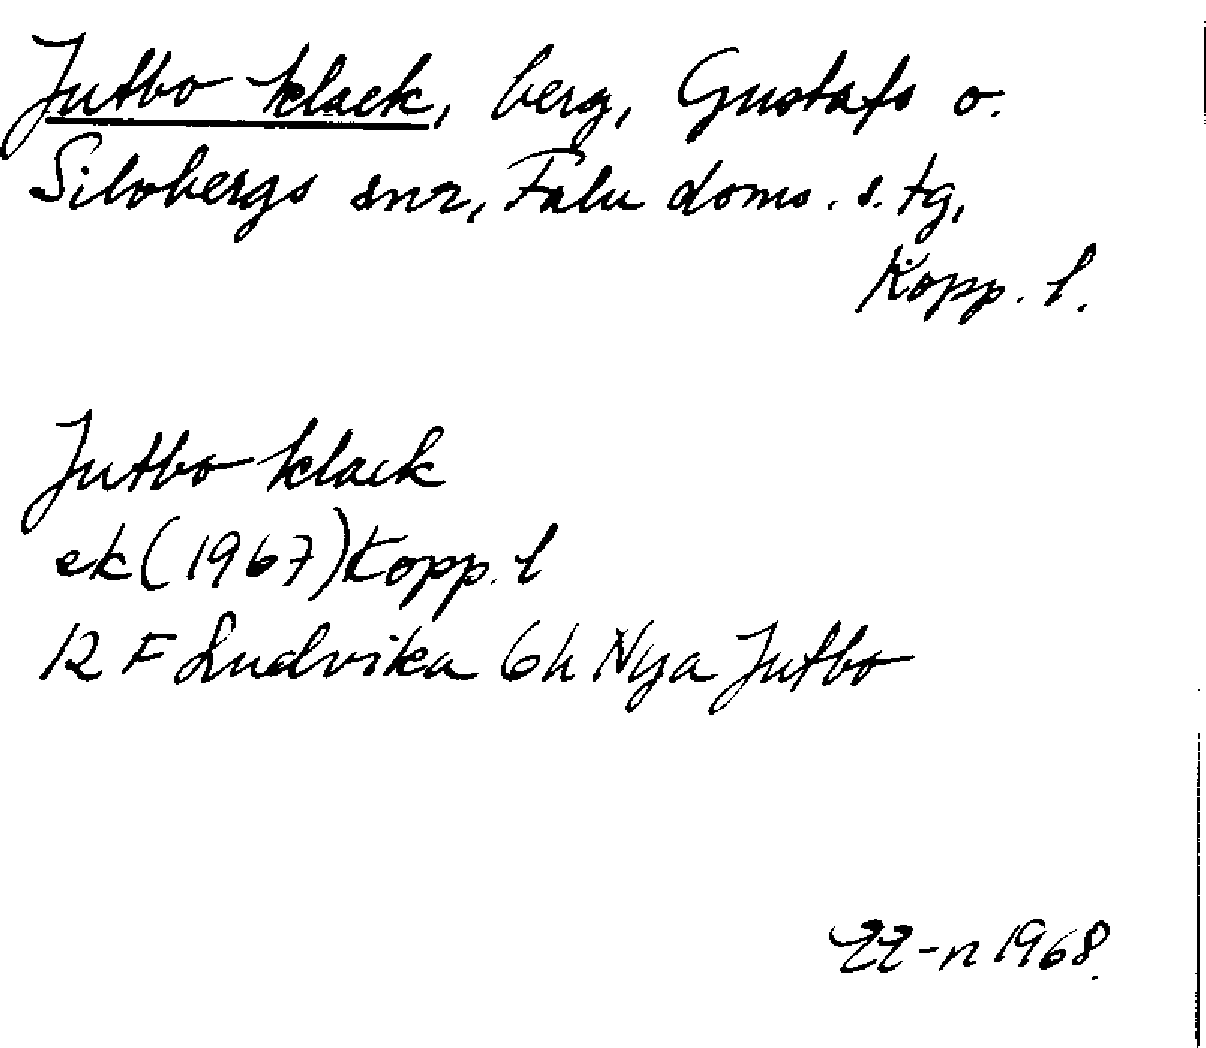 Jutbo klack, berg, Gustafs o.
Silvbergs snr, Falu doms. s. tg,
Kopp. l.
Jutbo klack
ek (1967) Kopp. l
12 F Ludvika 6h Nya Jutbo
1968.